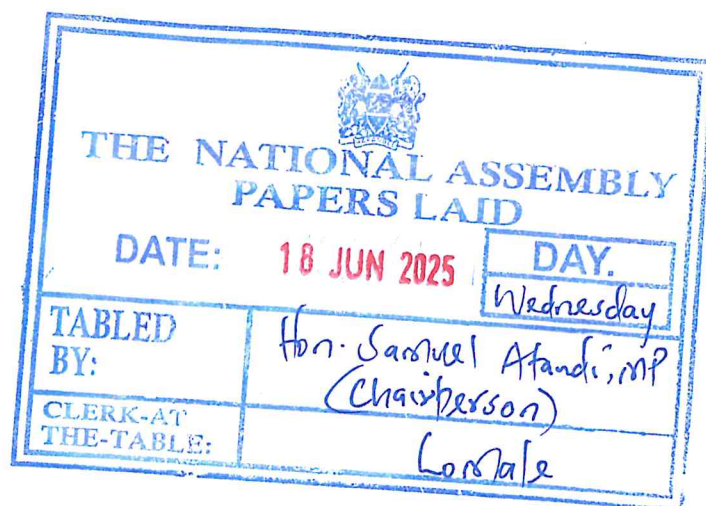 THE NATIONAL ASSEMBLY
PAPERS LAID
DATE: 18 JUN 2025 DAY.
Wednesday
TABLED BY: Hon. Samuel Atandi, MP
(Chairperson)
CLERK-AT
THE-TABLE: